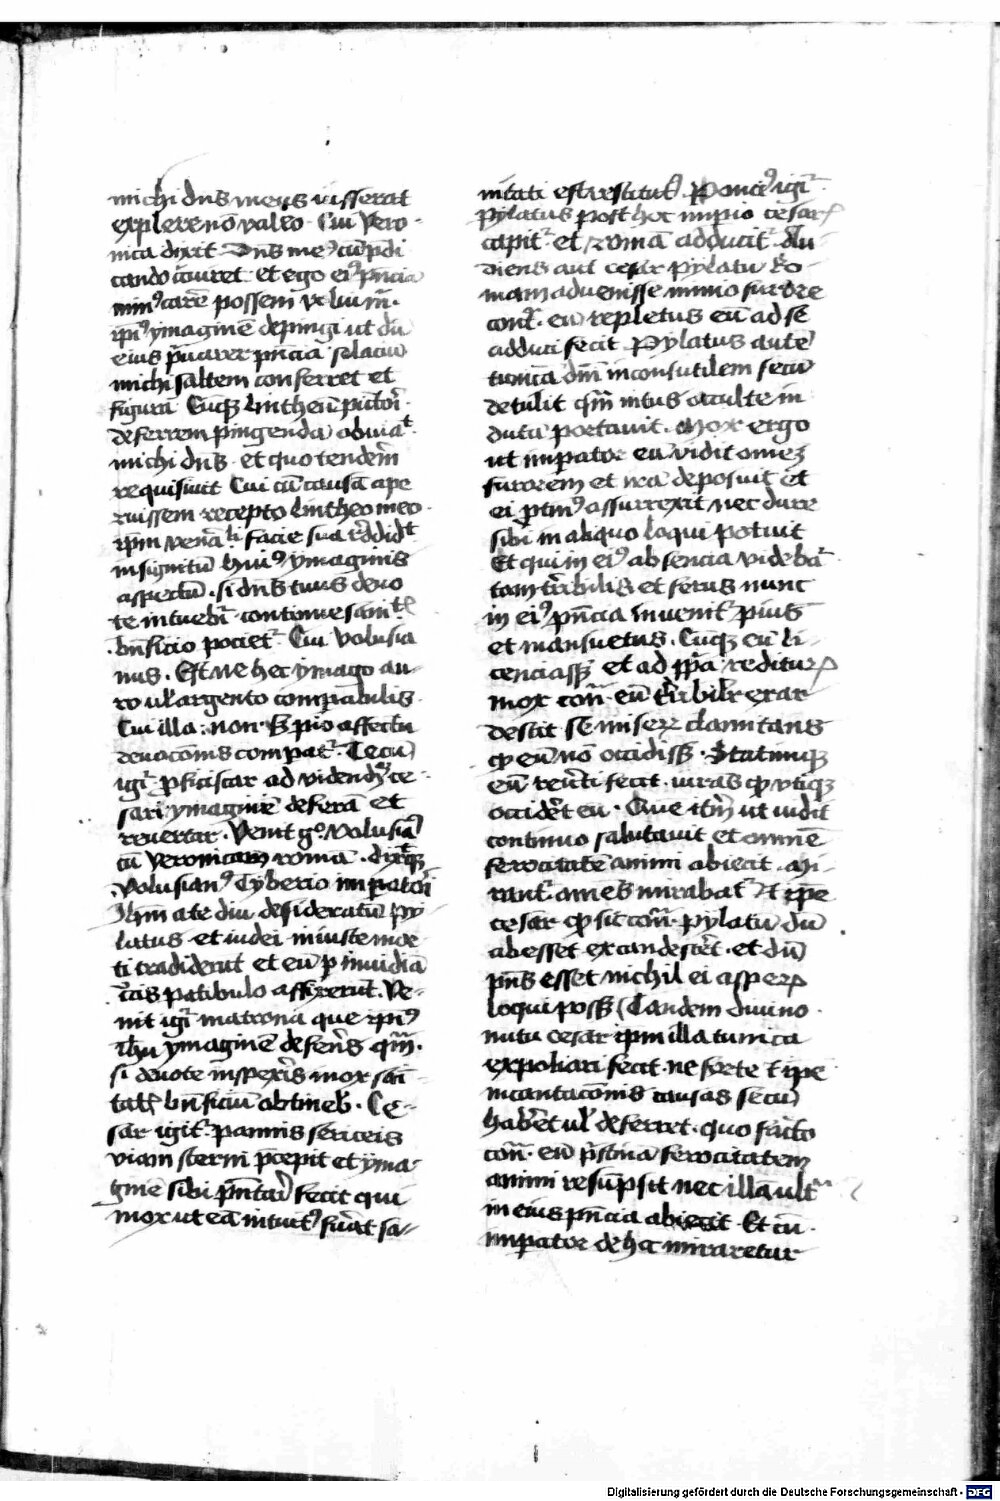 michi dn̄s meus iusserat
explere nō valeo · Cui Vero-
nica dixit Dn̄s me9 cū p̄di
cando circuiret et ego ei9 p̄ncia
nimi9 carē possem volui m̄·
ip̄i9 ymaginē depingi ut dū
eius p̄uarer p̄ncia solaciū
michi saltem conferret et
figurā Cūqȝ lintheū pictori
deferrem pingendā obuiat
michi dn̄s · et quo tenderem̄
requisiuit Cui cū causā ape
ruissem recepto lintheo meo·
ip̄m venerabili facie sua reddidit
insignitū hui9 ymaginis
aspectū · si dn̄s tuus deuo
te intuebit̄ continue sanit
bn̄ficio pociet̄ · Cui Volusia
nus · Est ne hec ymago au-
ro ul̄ argento comparabilis
Cui illa · non · s̄ pio affectu
deuocōnis compat̄ · Tecū
igit̄ p̄ficiscar ad videndū ce-
sari ymaginē deferā et
reuertar · Venit g° Volusia9
cū Veronicam romā · dixitqȝ
Volusian9 Tyberio impatori
Ihm̄ a te diu desideratū Py
latus et iudei iniuste mor
ti tradiderūt et eū p inuidiā
crucis patibulo affixerūt. Ve-
nit igit̄ matrona que ip̄i9
ih̄u ymaginē deferēs qm̄·
si deuote inspexeris mox sani
tatis bn̄ficiū obtineb̄ · Ce-
sar igit̄ pannis sericeis
viam sterni p̄cepit et yma-
ginē sibi p̄ntari fecit qui
mox ut eā intuit9 fuit sa-
nitati est restitut9 Ponci9 igit̄
Pylatus post hoc impio cesaꝝ
capit̄ et romā adducit̄ Au
diens aut cesar pylatū Ro
mam aduenisse nimio furore
cont̄ eū repletus eū ad se
adduci fecit Pylatus autē
tunicā dn̄i inconsutilem secū
detulit qm̄ intus occulte in
dutā portauit · Mox ergo
ut impator eū vidit omnē
furorem et irā deposuit et
ei ptin9 assurrexit nec dure
sibi in aliquo loqui potuit
Et qui in ei9 absencia videbat̄
tam terribilis et ferus nunc
in ei9 p̄ncia inuenit̄ pius
et mansuetus · Cūqȝ eū li-
cenciass̄ et ad p̄pa redituꝝ
mox cont̄ eū terribilit̄ exar
descit se miseꝝ clamitans
qp eū nō occidiss̄ · Statimqȝ
eū reuerti fecit · iurās qp vtiqȝ
occideret eū · Que itm̄ ut vidit
continuo salutauit et omnē
ferocitatē animi abiecit · Mi-
rant̄ omes mirabat̄ et ipe
cesar qp sic cont̄ pylatū dū
abesset excandesceret · et dū
p̄ns esset nichil ei aspeꝝ
loqui poss̄ Tandem diuino
nutu cesar ipm illa tunica
expoliari fecit · ne forte et ipe
incantacōnis causas secū
haberet ul̄ deferret · quo facto
cont̄ eū p̄stinā ferocitatem
animi resūpsit nec illā ult̄
in eius p̄ncia abiecit Et cū
impator de hoc miraretur
Digitalisierung gefördert durch die Deutsche Forschungsgemeinschaft - DFG